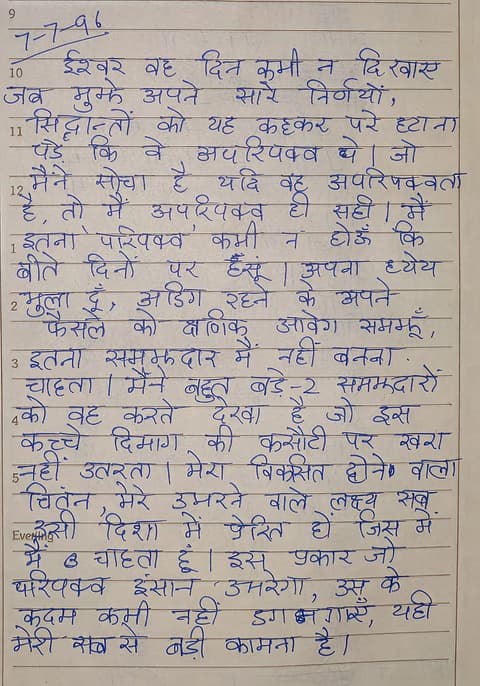 9
7-7-96
10 ईश्वर वह दिन कभी न दिखाए
जब मुझे अपने सारे निर्णयों,
11 सिद्धान्तों को यह कहकर परे हटाना
पड़े कि वे अपरिपक्व थे। जो
12 मैंने सोचा है यदि वह अपरिपक्वता
है, तो मैं अपरिपक्व ही सही। मैं
1 इतना 'परिपक्व' कभी न होऊँ कि
बीते दिनों पर हँसूं। अपना ध्येय
2 भुला दूँ, अडिग रहने के अपने
फैसले को क्षणिक आवेग समझूँ,
3 इतना समझदार मैं नहीं बनना
चाहता। मैंने बहुत बड़े-2 समझदारों
4 को वह करते देखा है जो इस
कच्चे दिमाग की कसौटी पर खरा
5 नहीं उतरता। मेरा विकसित होने वाला
चिंतन, मेरे उभरने वाले लक्ष्य सब
Evening उसी दिशा में प्रेरित हों जिस में
मैं चाहता हूं। इस प्रकार जो
परिपक्व इंसान उभरेगा, उस के
कदम कभी नहीं डगमगाएँ, यही
मेरी सब से बड़ी कामना है।